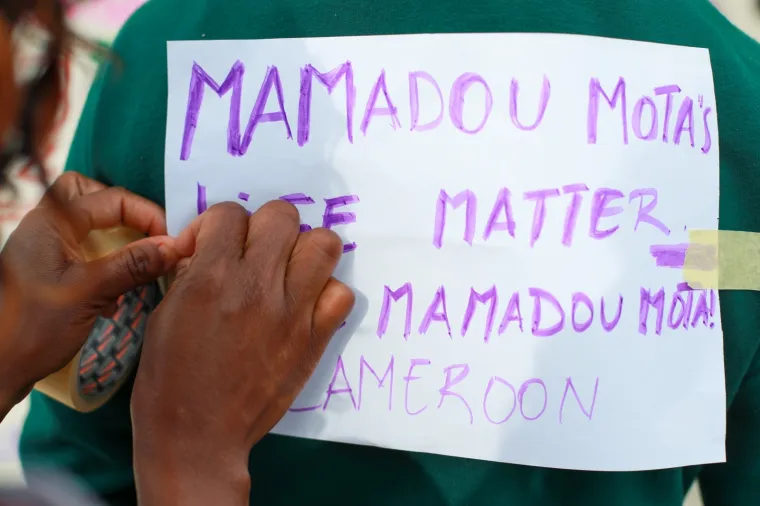 MAMADOU MOTA'S
LiFE MATTER
MAMADOU MOTA!
CAMEROON